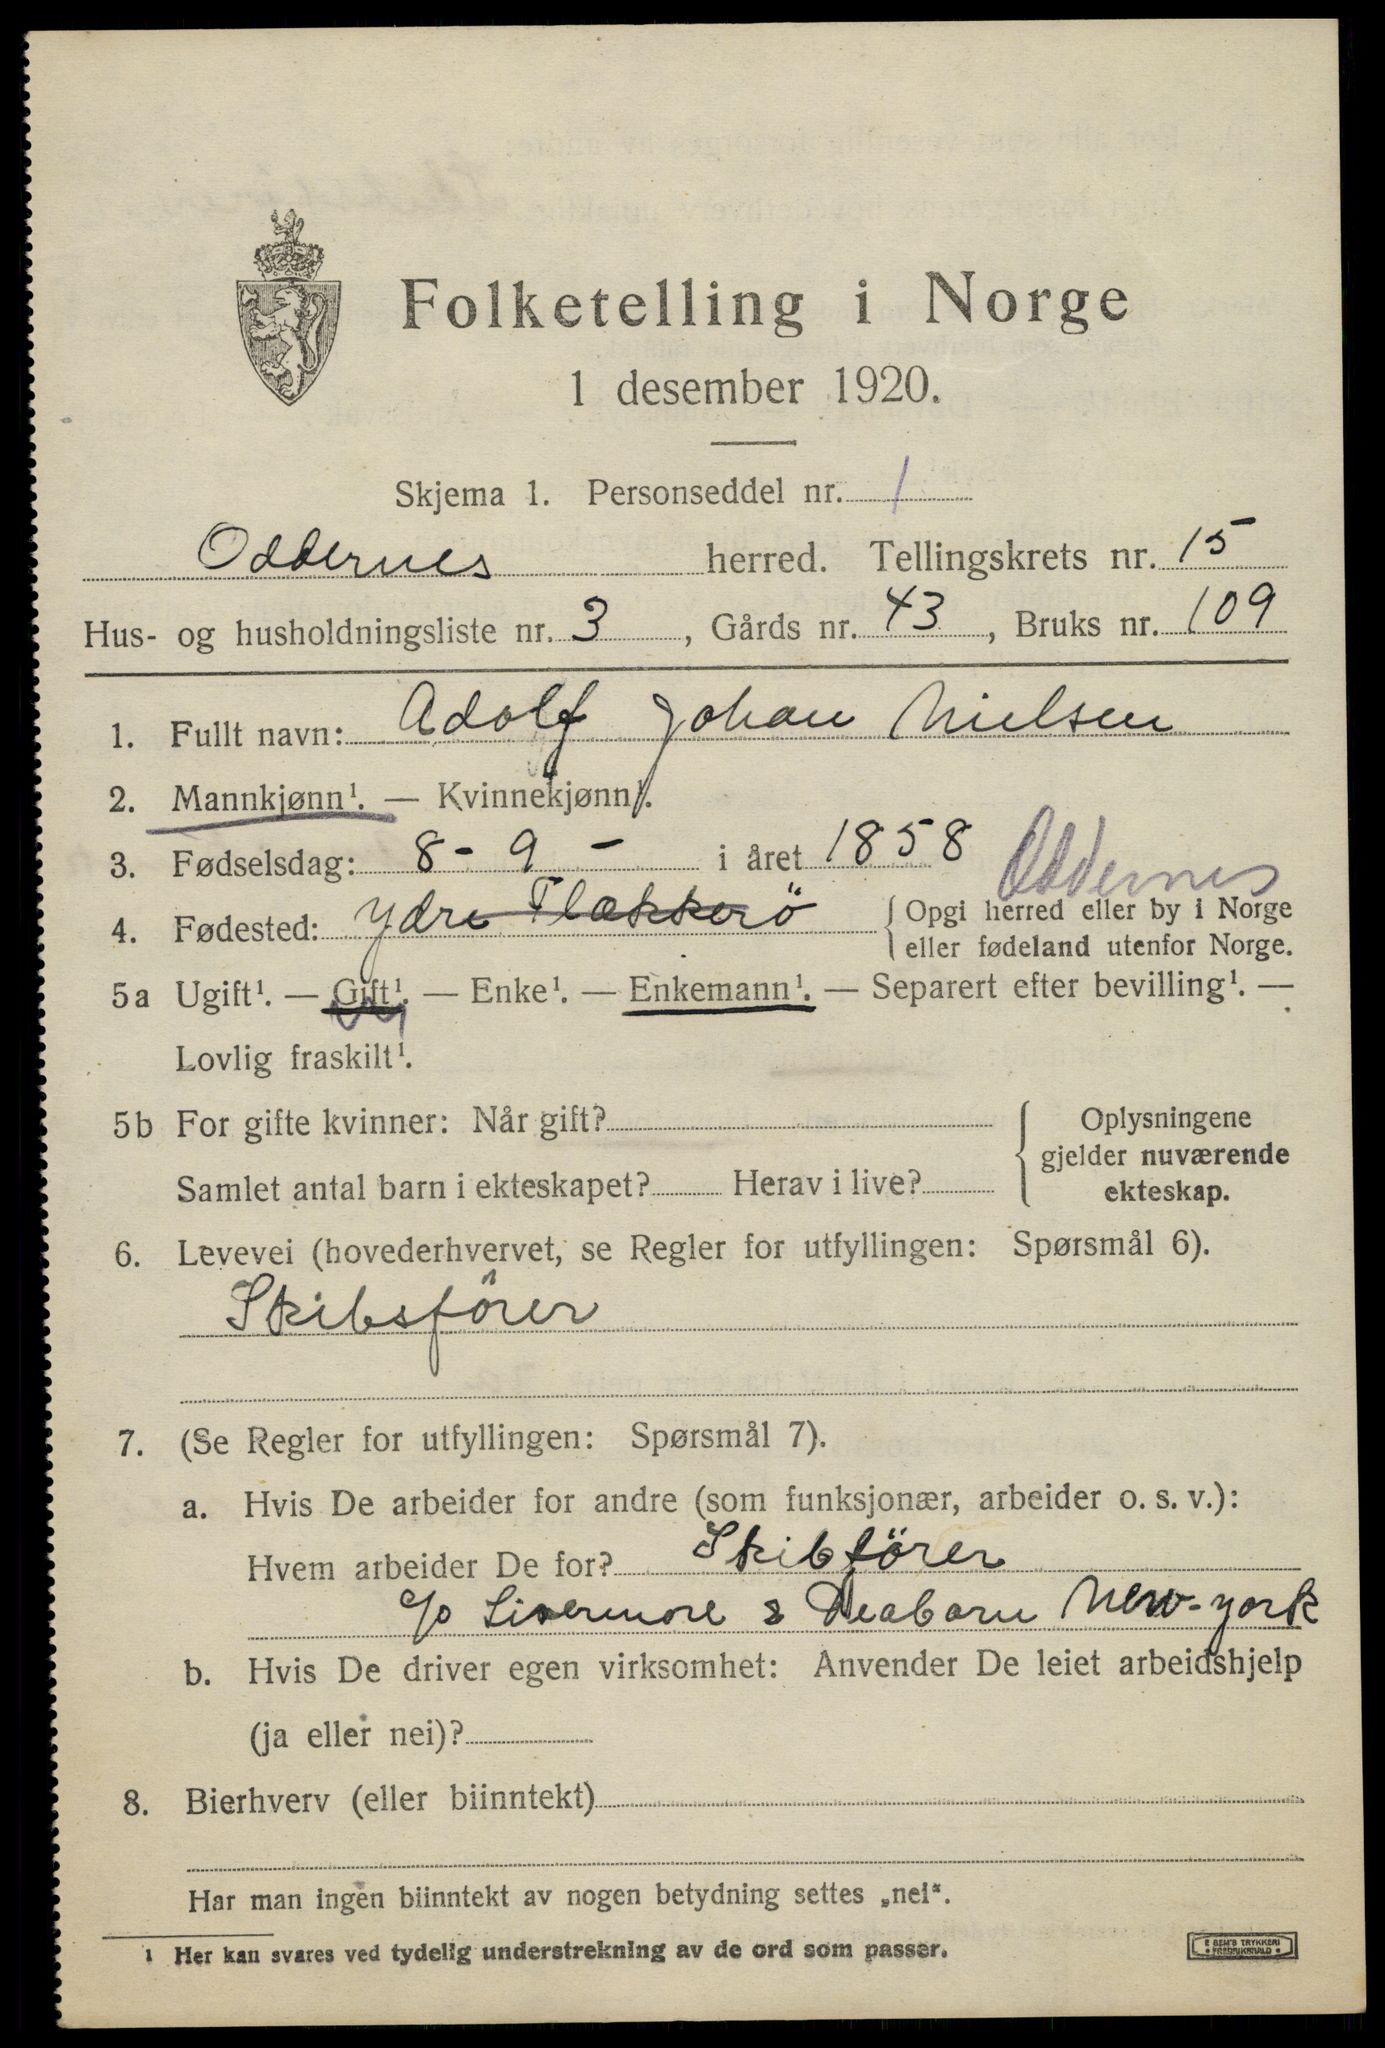 Folketelling i Norge
1 desember 1920.
Skjema 1. Personseddel nr. 1
Oddernes herred. Tellingskrets nr. 15
Hus- og husholdningsliste nr. 3, Gårds nr. 43, Bruks nr. 109
1. Fullt navn: Adolf Johan Nielsen
2. Mannkjønn¹. — Kvinnekjønn¹.
3. Fødselsdag: 8 - 9 - i året 1858 Oddernes
4. Fødested: Ydre Flækkerö { Opgi herred eller by i Norge
eller fødeland utenfor Norge.
5a Ugift¹. — Gift¹. — Enke¹. — Enkemann¹. — Separert efter bevilling¹. —
Lovlig fraskilt¹.
5b For gifte kvinner: Når gift?
Samlet antal barn i ekteskapet? Herav i live?
Oplysningene
gjelder nuværende
ekteskap.
6. Levevei (hovederhvervet, se Regler for utfyllingen: Spørsmål 6).
Skibsförer
7. (Se Regler for utfyllingen: Spørsmål 7).
a. Hvis De arbeider for andre (som funksjonær, arbeider o. s. v.):
Hvem arbeider De for? Skibförer
c/o Livermore & Deaborn New-york
b. Hvis De driver egen virksomhet: Anvender De leiet arbeidshjelp
(ja eller nei)?
8. Bierhverv (eller biinntekt)
Har man ingen biinntekt av nogen betydning settes „nei“.
¹ Her kan svares ved tydelig understrekning av de ord som passer.
E SEM'S TRYKKERI
FREDRIKSHALD